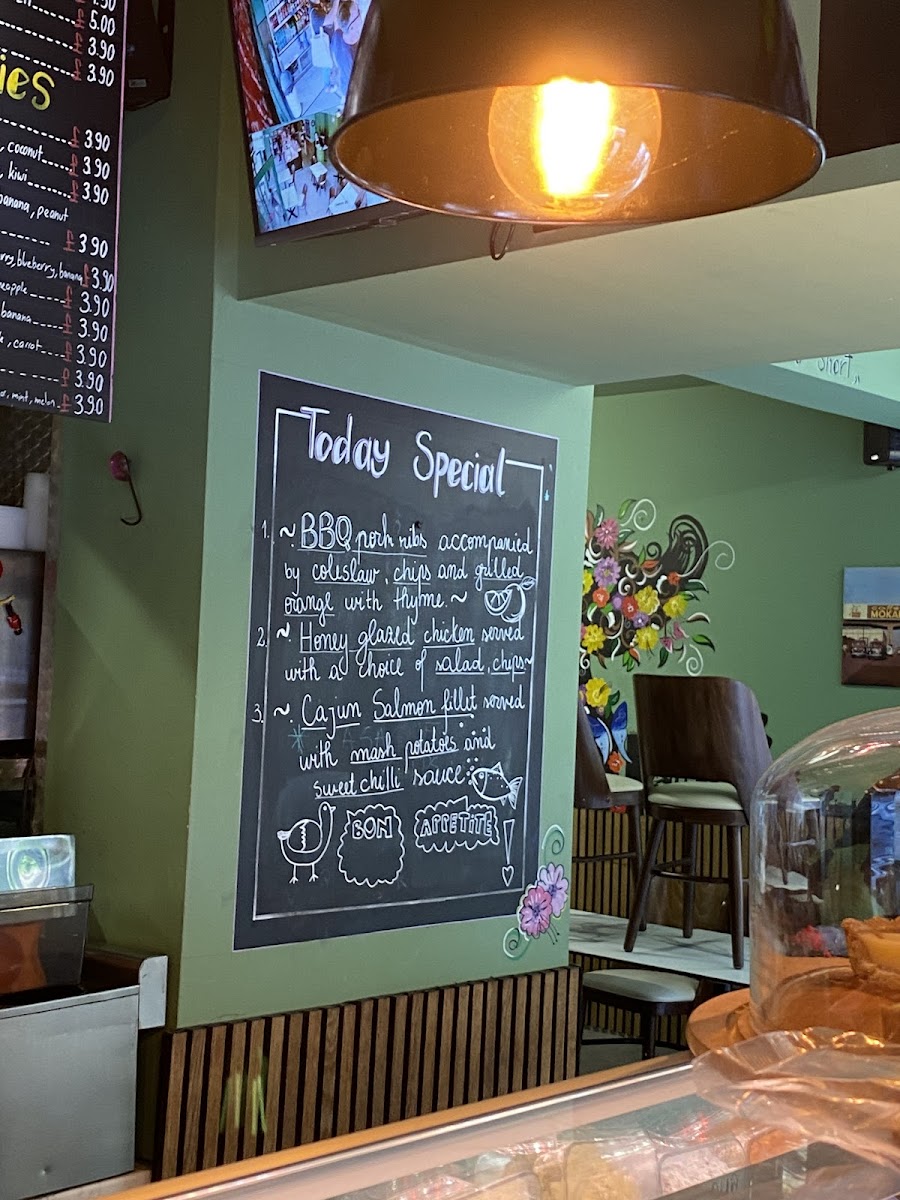 5.00
3.90
3.90
ies
3.90
, coconut 3.90
, kiwi 3.90
banana, peanut
3.90
blueberry, banana 3.90
3.90
banana 3.90
, carrot 3.90
3.90
, mint, melon 3.90
Today Special
1. ~. BBQ pork ribs accompanied
by coleslaw, chips and grilled
orange with thyme. ~
2. ~ Honey glazed chicken served
with a choice of salad, chips~
3. ~. Cajun Salmon fillet served
with mash potatoes and
sweet chilli sauce
BON APPETITE !
Short
MOKA